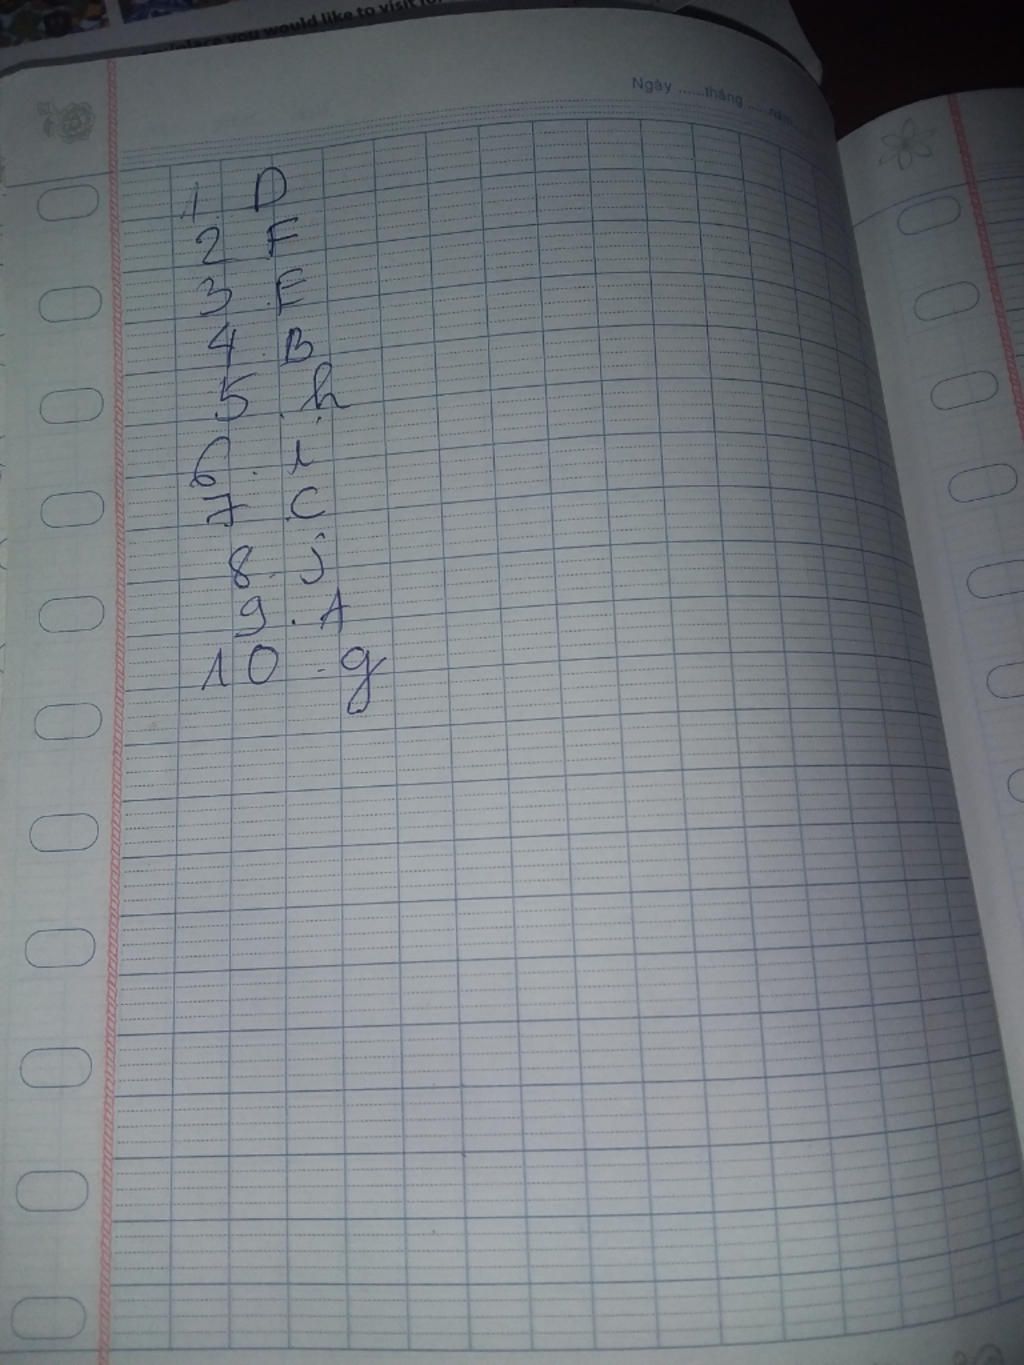 place you would like to visit
Ngày ......tháng .....năm
1. D
2 F
3. E
4. B
5. h
6. i
7. C
8. j
9. A
10 - g